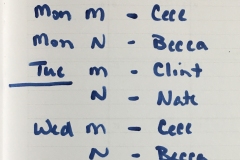 Mon M - Cece
Mon N - Becca
Tue M - Clint
N - Nate
Wed M - Cece
N - Becca